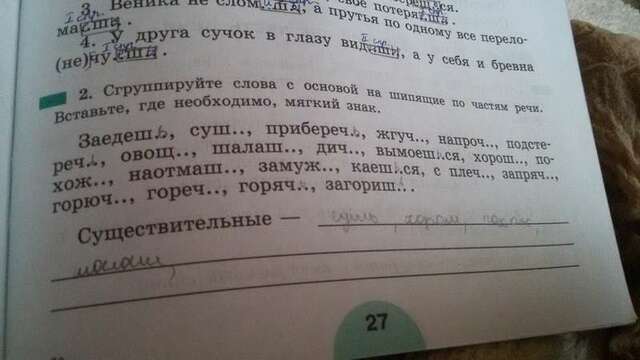 3. Веника не сломишь, а прутья по одному все перело-
маешь.
4. У друга сучок в глазу видишь, а у себя и бревна
(не)чуешь.
2. Сгруппируйте слова с основой на шипящие по частям речи.
Вставьте, где необходимо, мягкий знак.
Заедешь, суш.., прибереч.ь, жгуч.., напроч.., подсте-
реч.ь, овощ.., шалаш.., дич.., вымоешься, хорош.., по-
хож.., наотмаш.., замуж.., каешься, с плеч.., запряч..,
горюч.., гореч.., горяч.., загориш..
Существительные —
27